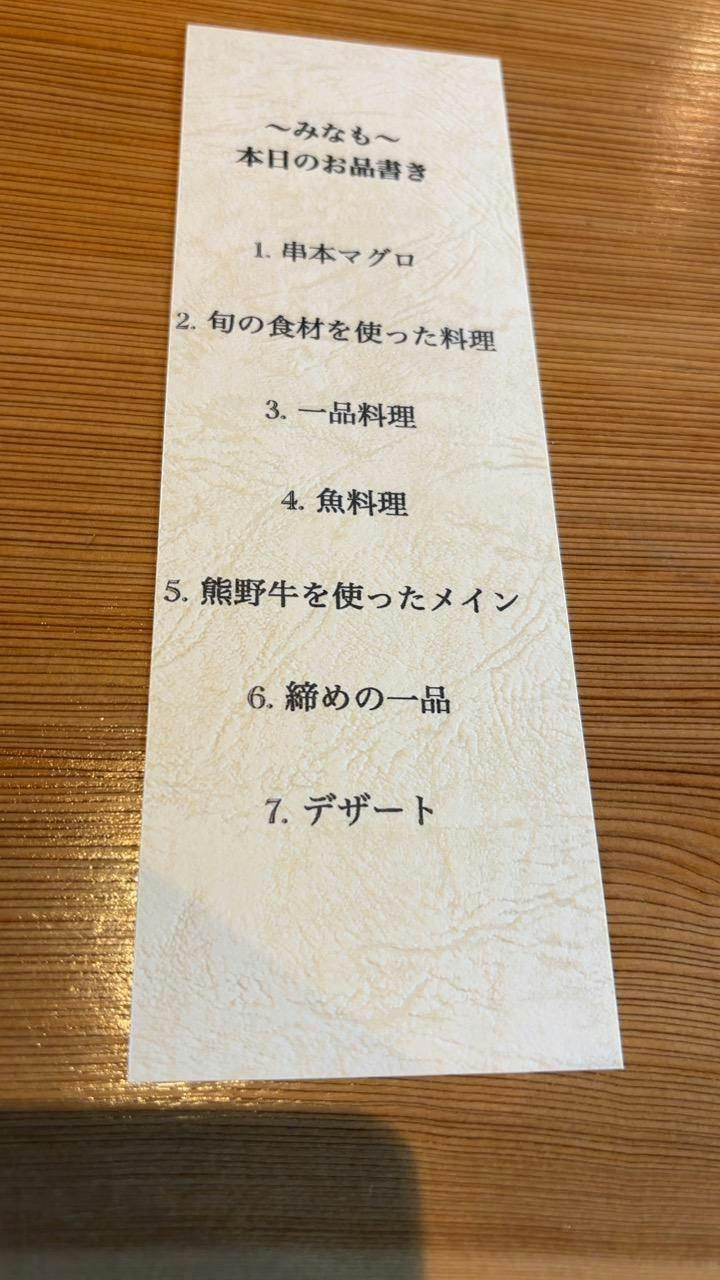 ～みなも～
本日のお品書き
1. 串本マグロ
2. 旬の食材を使った料理
3. 一品料理
4. 魚料理
5. 熊野牛を使ったメイン
6. 締めの一品
7. デザート